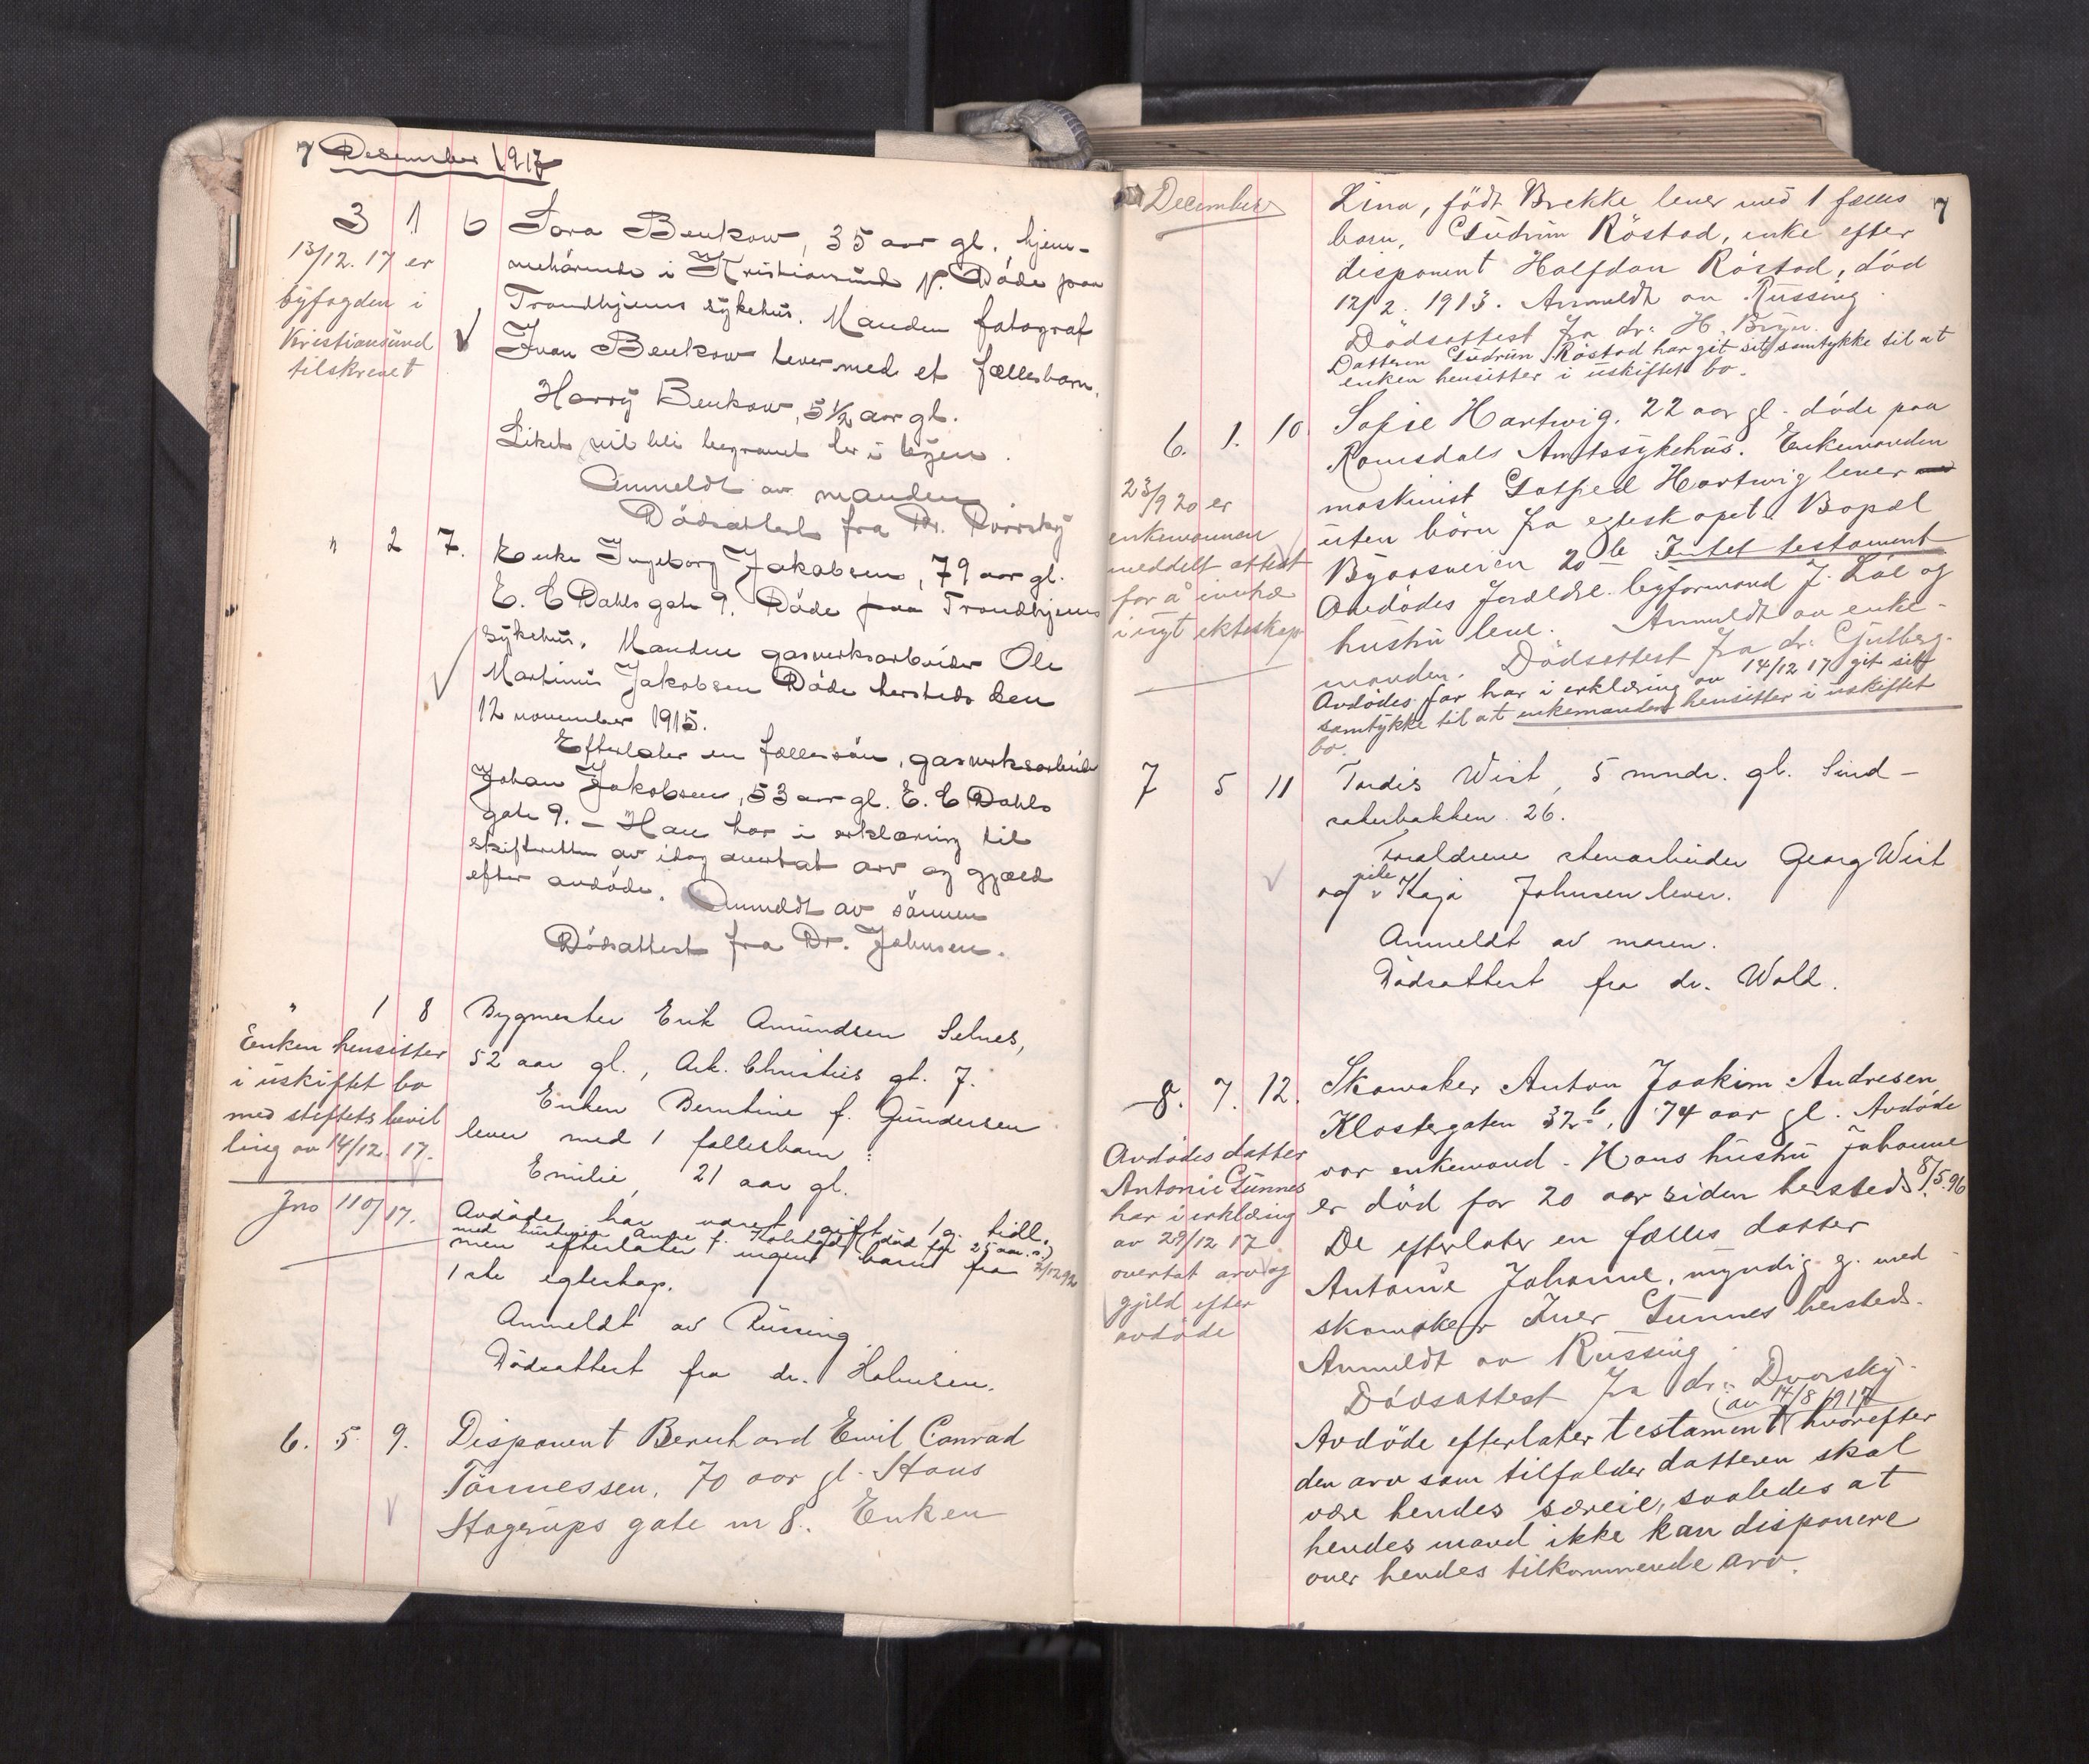 7 Desember 1917
3 1 6 Sara Benkow, 35 aar gl. hjem-
mehörende i Kristiansund N. Döde paa
Trondhjems sykehus. Manden fotograf
Ivan Benkow lever med et fællesbarn,
Harry Benkow, 5 1/2 aar gl.
Liket vil bli begravet her i byen.
Anmeldt av manden.
Dödsattest fra Dr. Dvorsky
13/12. 17 er
byfogden i
Kristiansund
tilskrevet
" 2 7. Enke Ingeborg Jakobsen, 79 aar gl.
E. C Dahls gate 9. Döde paa Trondhjems
sykehus. Manden gasverksarbeider Ole
Martinus Jakobsen Döde hersteds den
12 november 1915.
Efterlater en fællessön, gasverksarbeider
Johan Jakobsen, 53 aar gl. E. C Dahls
gate 9. – Han har i erklæring til
skifteretten av idag overtat arv og gjæld
efter avdöde. Anmeldt av sönnen
Dödsattest fra Dr. Johnsen.
" 1 8 Bygmester Erik Amundsen Selnes,
52 aar gl., Ark. Christies gt. 7.
Enken Berntine f. Gundersen
lever med 1 fællesbarn:
Emilie, 21 aar gl.
Avdöde har været gift 1 g. tidl.
med hustruen Anne f. (död for 25 aar s.)
men efterlater ingen barn fra 2/12 92
1ste egteskap.
Anmeldt av Russing.
Dödsattest fra dr. Holmsen.
Enken hensitter
i uskiftet bo
med stiftets bevil
ling av 14/12. 17.
Jno 110/17.
6. 5 9. Disponent Bernhard Emil Conrad
Tönnessen, 70 aar gl. Hans
Hagerups gate nr 8. Enken
December 7
Lina, födt Brekke lever med 1 fælles
barn, Gudrun Röstad, enke efter
disponent Halfdan Röstad, död
12/2. 1913. Anmeldt av Russing.
Dödsattest fra dr. H. Bryn.
Datteren Gudrun Röstad har git sit samtykke til at
enken hensitter i uskiftet bo.
6. 1. 10. Sofie Hartwig. 22 aar gl. döde paa
Romsdals Amtssykehus. Enkemanden
maskinist Gotfred Hartwig lever
uten börn fra egteskapet. Bopæl
Byaasveien 20 b Intet testament
Avdödes forældre byformand J. Löe og
hustru lever. Anmeldt av enke-
manden. Dödsattest fra dr. Gjulberg.
Avdödes far har i erklæring av 14/12 17 git sit
samtykke til at enkemanden hensitter i uskiftet
bo.
23/9 20 er
enkemannen
meddelt attest
for å innha
i nyt ekteskap
7 5 11 Tordis Wist, 5 mndr. gl. Sind-
sakerbakken. 26.
Forældrene stenarbeider Georg Wist
og pike Kaja Johnsen lever.
Anmeldt av moren.
Dödsattest fra dr. Wold.
8. 7. 12. Skomaker Anton Joakim Andresen
Klostergaten 32 b, 74 aar gl. Avdöde
var enkemand. Hans hustru Johanne
er död for 20 aar siden hersteds 8/5.96
De efterlater en fælles datter
Antonie Johanne, myndig g. med
skomaker Iver Gunnes hersteds.
Anmeldt av Russing
Dödsattest fra dr. Dvorsky.
(av 14/8 1917
Avdöde efterlater testament hvorefter
den arv som tilfalder datteren skal
være hendes særeie, saaledes at
hendes mand ikke kan disponere
over hendes tilkommende arv.
Avdödes datter
Antonie Gunnes
har i erklæring
av 29/12 17
overtat arv og
gjæld efter
avdöde